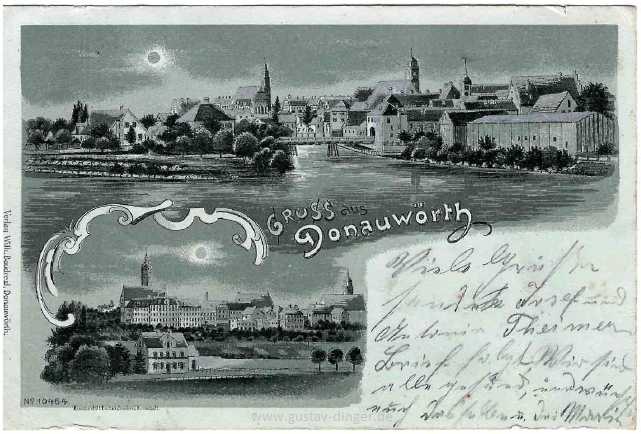 GRUSS aus
Donauwörth
Viele Grüße
sendet Josef und
Antonia Theimer
Brief folgt Wir sind
alle gesund, und
Verlag Wilh. Donauwörth.
No. 10464.
www.gustav-dinger.de